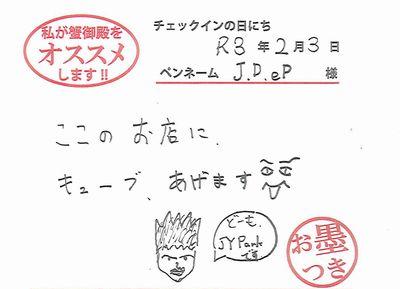 私が蟹御殿を
オススメ
します!!
チェックインの日にち
R3年2月3日
ペンネーム J.D.eP 様
ここのお店に、
キューブ、あげます
どーも、
JYPark
です
お墨
つき